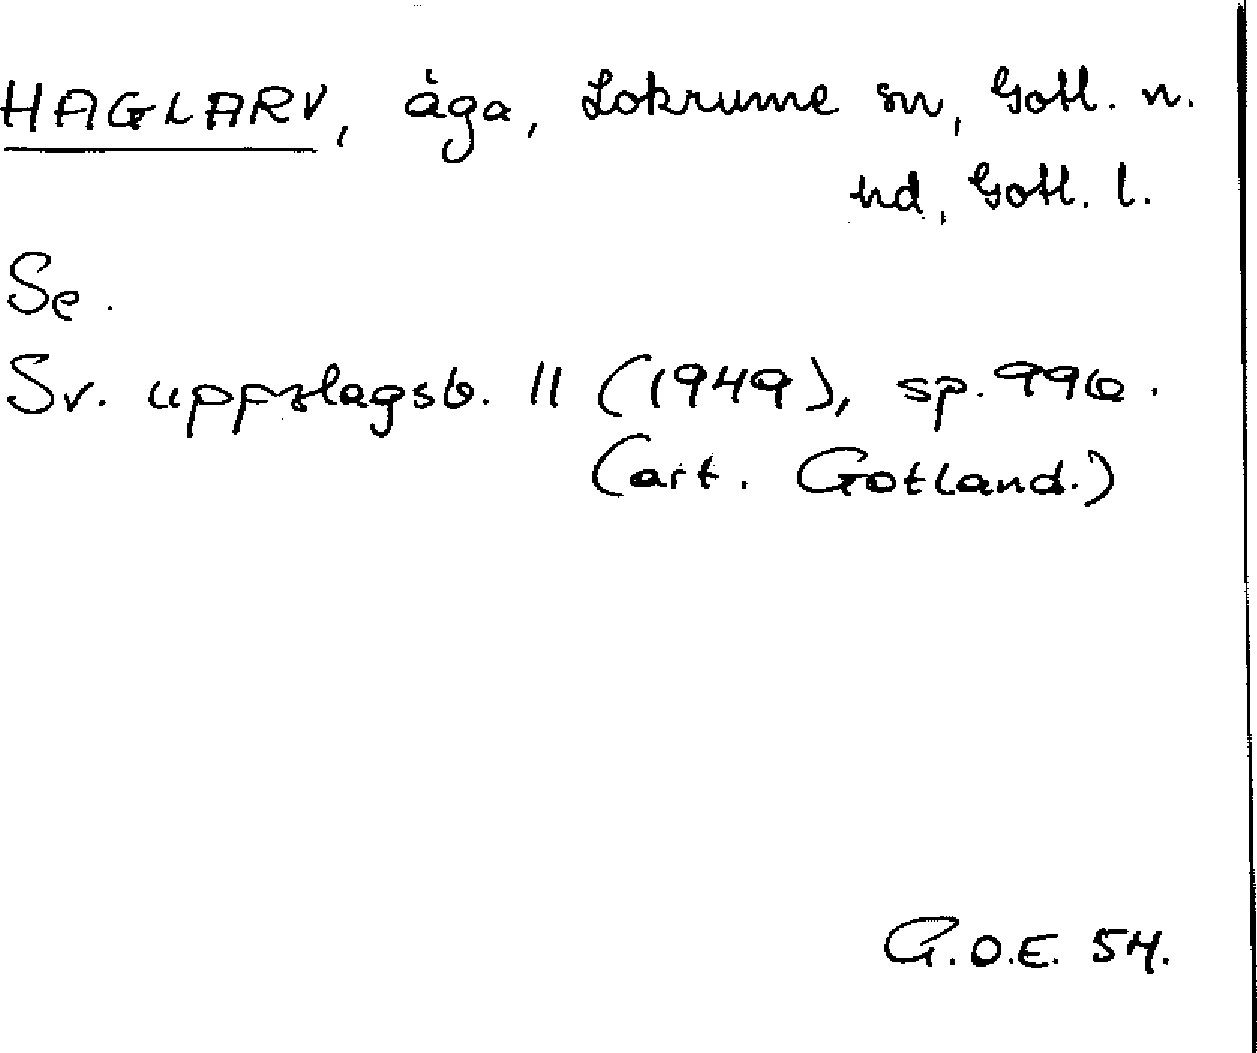 HAGLARV, åga, Lokrume sn, Gotl. n.
hd, Gotl. l.
Se.
Sv. uppslagsb. 11 (1949), sp. 996.
(art. Gotland.)
G.O.E. 54.